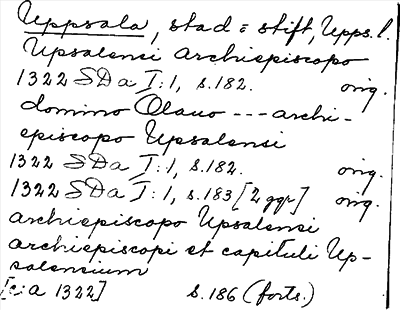 Uppsala, stad = stift, Upps. l.
Upsalensi archiepiscopo
1322 SDa I:1, s. 182. orig.
domino Olauo --- archi-
episcopo Upsalensi
1322 SDa I:1, s. 182. orig.
1322 SDa I:1, s. 183 [2 ggr] orig.
archiepiscopo Upsalensi
archiepiscopi et capituli Up-
salensium
[c:a 1322] s. 186 (forts.)